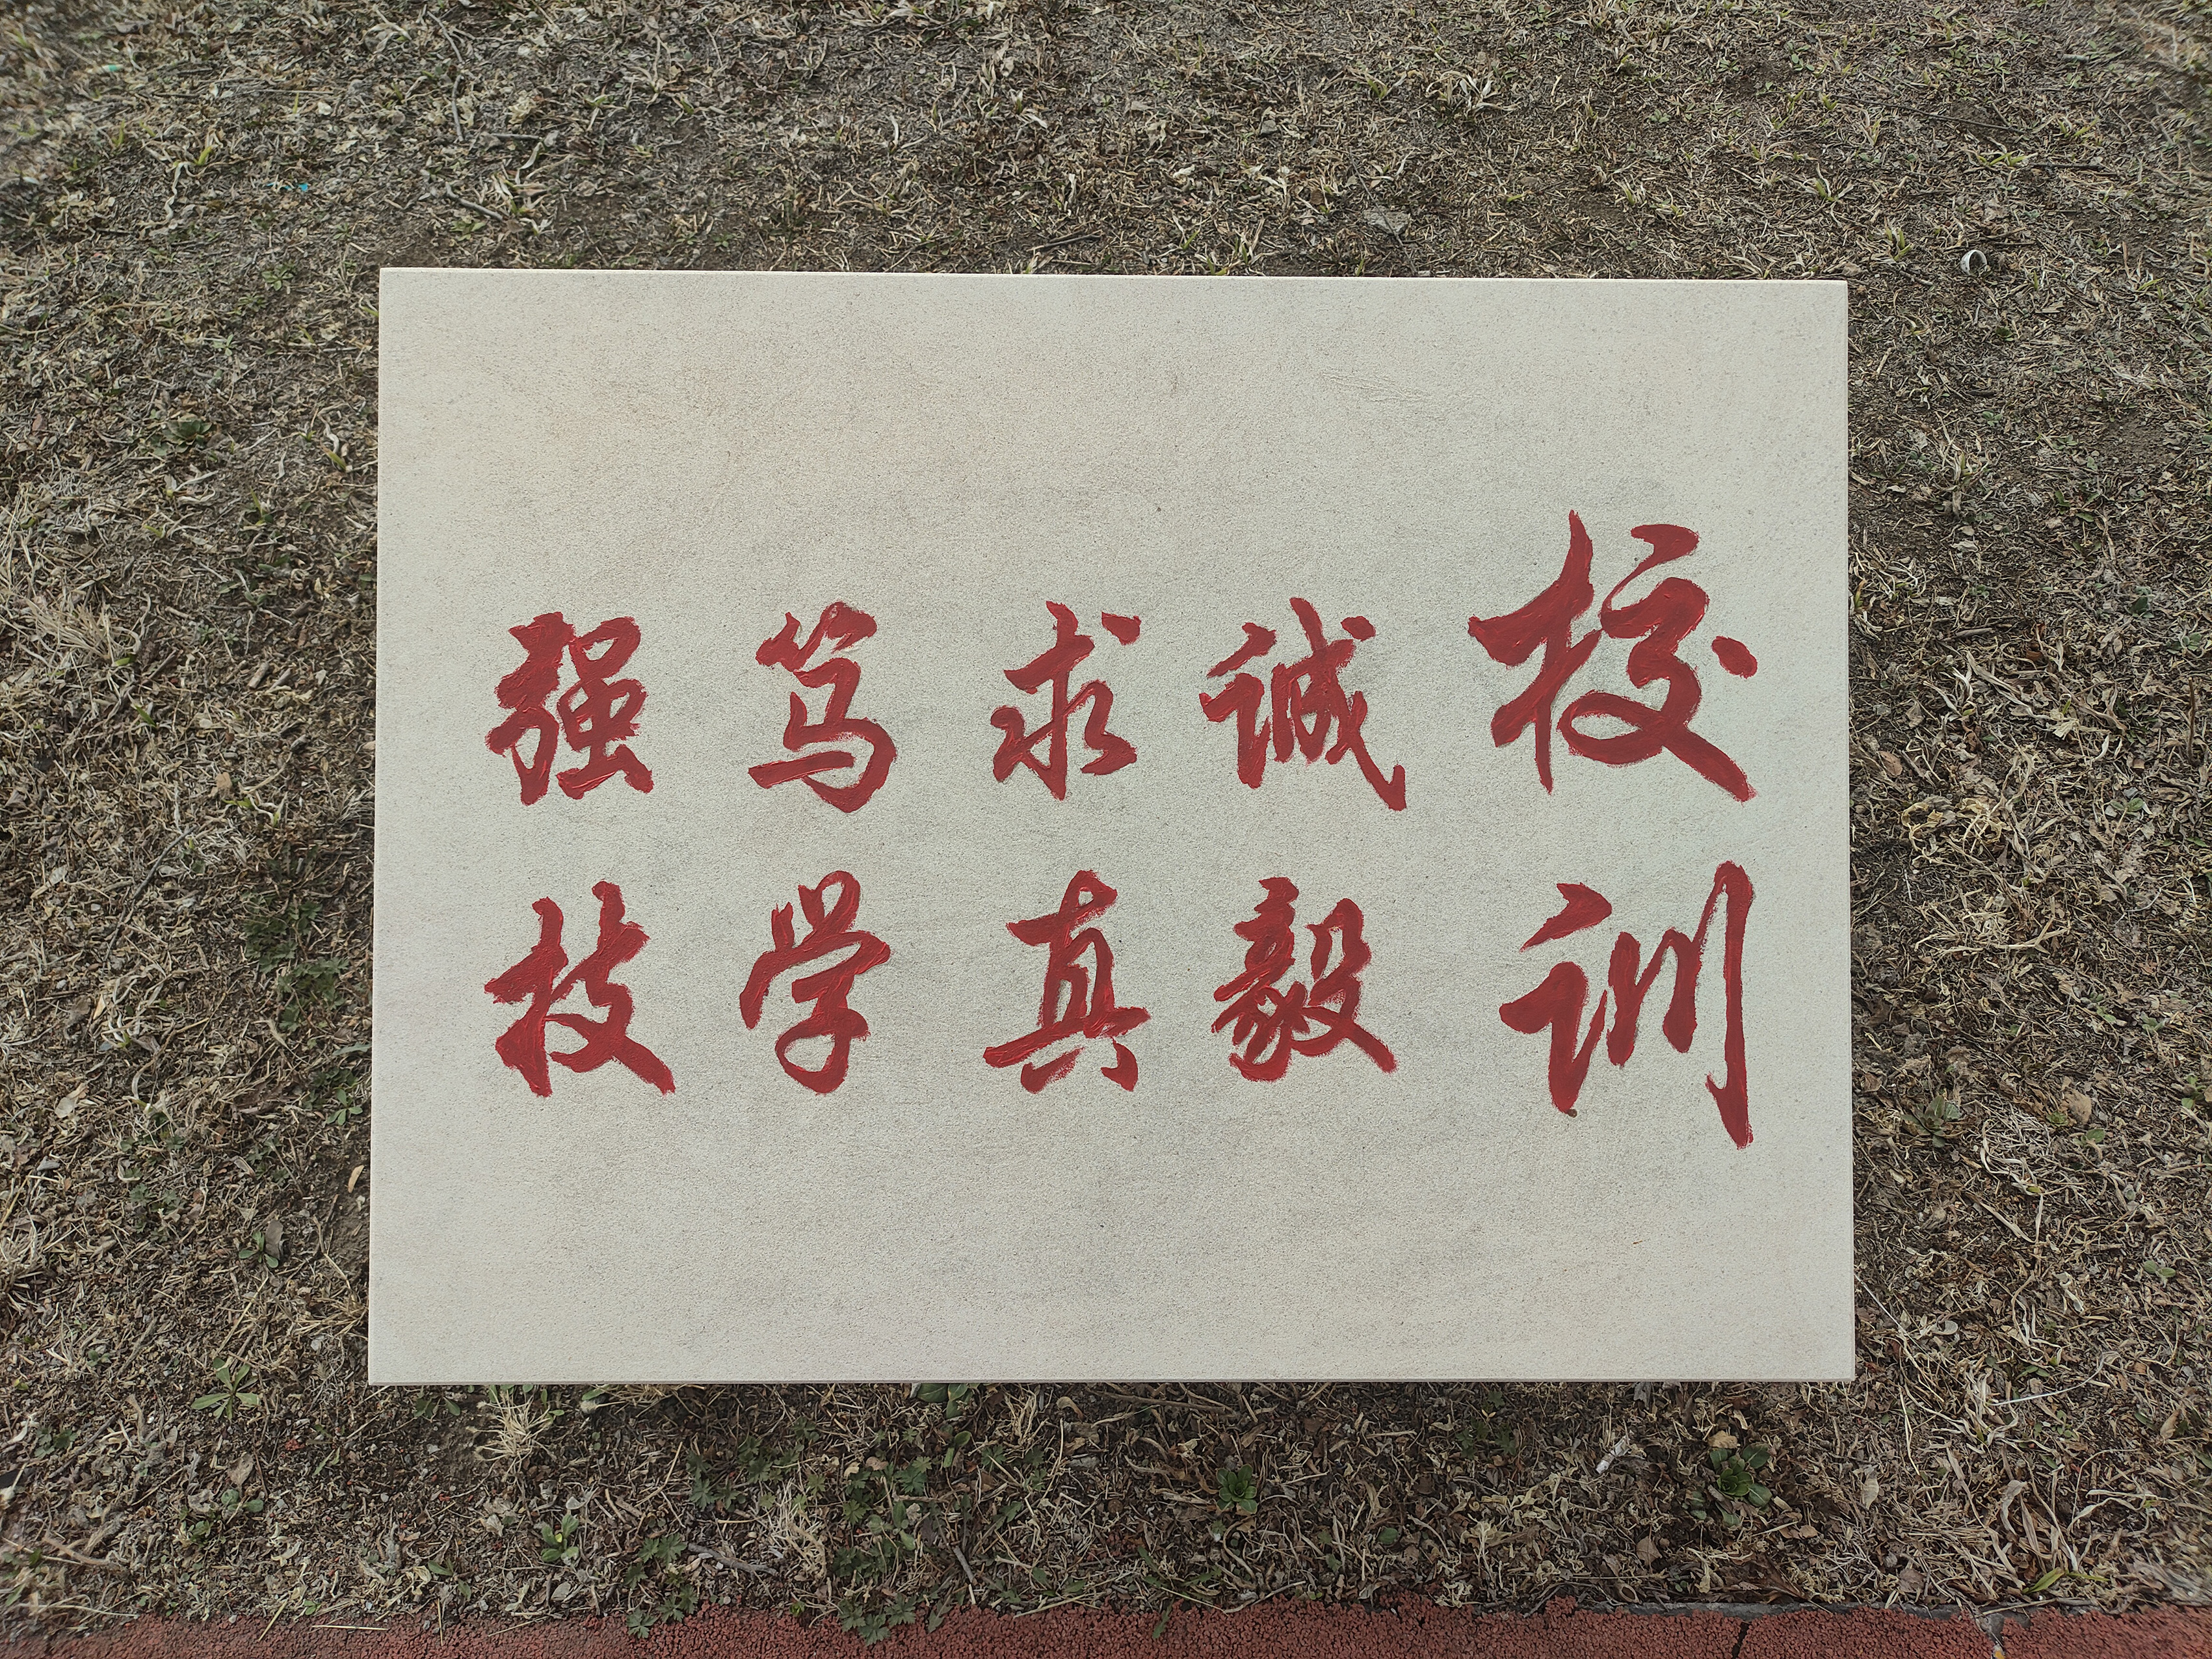 校训
诚毅
求真
笃学
强技